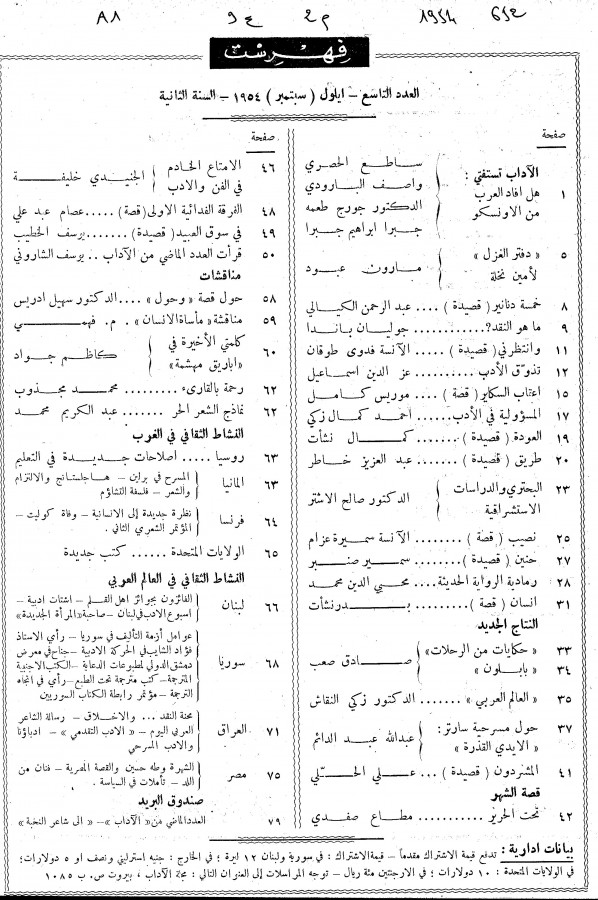 A8 9 ع 2 م 1954 652
فهرست
العدد التاسع – ايلول ( سبتمبر ) ١٩٥٤ – السنة الثانية
صفحة
الآداب تستفتي : ساطع الحصري
١ هل افاد العرب واصف البارودي
من الاونسكو الدكتور جورج طعمه
جبرا ابراهيم جبرا
٥ « دفتر الغزل » مارون عبود
لأمين نخلة
٨ خمسة دنانير ( قصيدة ) .... عبد الرحمن الكيالي
٩ ما هو النقد؟............ جوليان باندا
١١ وانتظرني ( قصيدة ) .... الآنسة فدوى طوقان
١٢ تذوق الأدب........... عز الدين اسماعيل
١٥ اعتاب السكاير ( قصة ) .... موريس كامل
١٧ المسؤولية في الأدب...... احمد كمال زكي
١٩ العودة ( قصيدة )....... كمال نشأت
٢٠ طريق ( قصيدة )....... عبد العزيز خاطر
٢٣ البحتري والدراسات الدكتور صالح الاشتر
الاستشراقية
٢٥ نصيب ( قصة )........ الآنسة سميرة عزام
٢٧ حنين ( قصيدة )........ سمير صنبر
٢٨ رمادية الرواية الحديثة.... محيي الدين محمد
٣١ انسان ( قصة )......... بدر نشأت
النتاج الجديد
٣٣ « حكايات من الرحلات » صادق صعب
٣٤ « بابلون »
٣٥ « العالم العربي » ....... الدكتور زكي النقاش
٣٧ حول مسرحية سارتر: عبدالله عبد الدائم
« الايدي القذرة »
٤١ المشردون ( قصيدة ) ... علي الحلي
قصة الشهر
٤٢ تحت الحرير ........... مطاع صفدي
صفحة
٤٦ الامتاع الخادم الجنيدي خليفة
في الفن والادب
٤٨ الفرقة الفدائية الاولى (قصة) ..... عصام عبد علي
٤٩ في سوق العبيد (قصيدة) ....... يوسف الخطيب
٥٠ قرأت العدد الماضي من الآداب .. يوسف الشاروني
مناقشات
٥٨ حول قصة « وحول » .... الدكتور سهيل ادريس
٥٩ مناقشة « مأساة الانسان » . م. فهمي
٦٠ كلمتي الأخيرة في كاظم جواد
« اباريق مهشمة »
٦٢ رحمة بالقارىء ......... محمد مجذوب
٦٢ نماذج الشعر الحر ....... عبد الكريم محمد
النشاط الثقافي في الغرب
٦٣ روسيا ..... اصلاحات جديدة في التعليم
٦٣ المانيا المسرح في برلين – هاجلستانج والالتزام
والشعر – فلسفة التشاؤم
٦٤ فرنسا نظرة جديدة إلى الانسانية – وفاة كوليت –
المؤتمر الشعري الثاني .
٦٥ الولايات المتحدة ...... كتب جديدة
النشاط الثقافي في العالم العربي
٦٦ لبنان الفائزون بجوائز اهل القلم – اشتات ادبية –
اسبوع الادب في لبنان – صاحبة «المرأة الجديدة»
عوامل أزمة التأليف في سوريا – رأي الاستاذ
فؤاد الشايب في الحركة الادبية – جناح في معرض
٦٨ سوريا دمشق الدولي لمطبوعات الدعاية – الكتب الاجنبية
المترجمة – كتب مترجمة تحت الطبع – رأي في اتجاه
الترجمة – مؤتمر رابطة الكتاب السوريين
محنة النقد ... والاخلاق – رسالة الشاعر
٧١ العراق العربي اليوم – « الادب التقدمي » – ادباؤنا
والادب المسرحي
٧٥ مصر الشهرة وطه حسين والقصة المصرية – فنان من
اللد – تأملات في السياسة .
صندوق البريد
٧٩ العدد الماضي من « الآداب » – الى شاعر النخبة »
بيانات ادارية : تدفع قيمة الاشتراك مقدماً – قيمة الاشتراك : في سورية ولبنان ١٢ ليرة ؛ في الخارج : جنيه استرليني ونصف او ٥ دولارات؛
في الولايات المتحدة : ١٠ دولارات ؛ في الارجنتين مئة ريال – توجه المراسلات إلى العنوان التالي : مجلة الآداب ، بيروت ص. ب ١٠٨٥